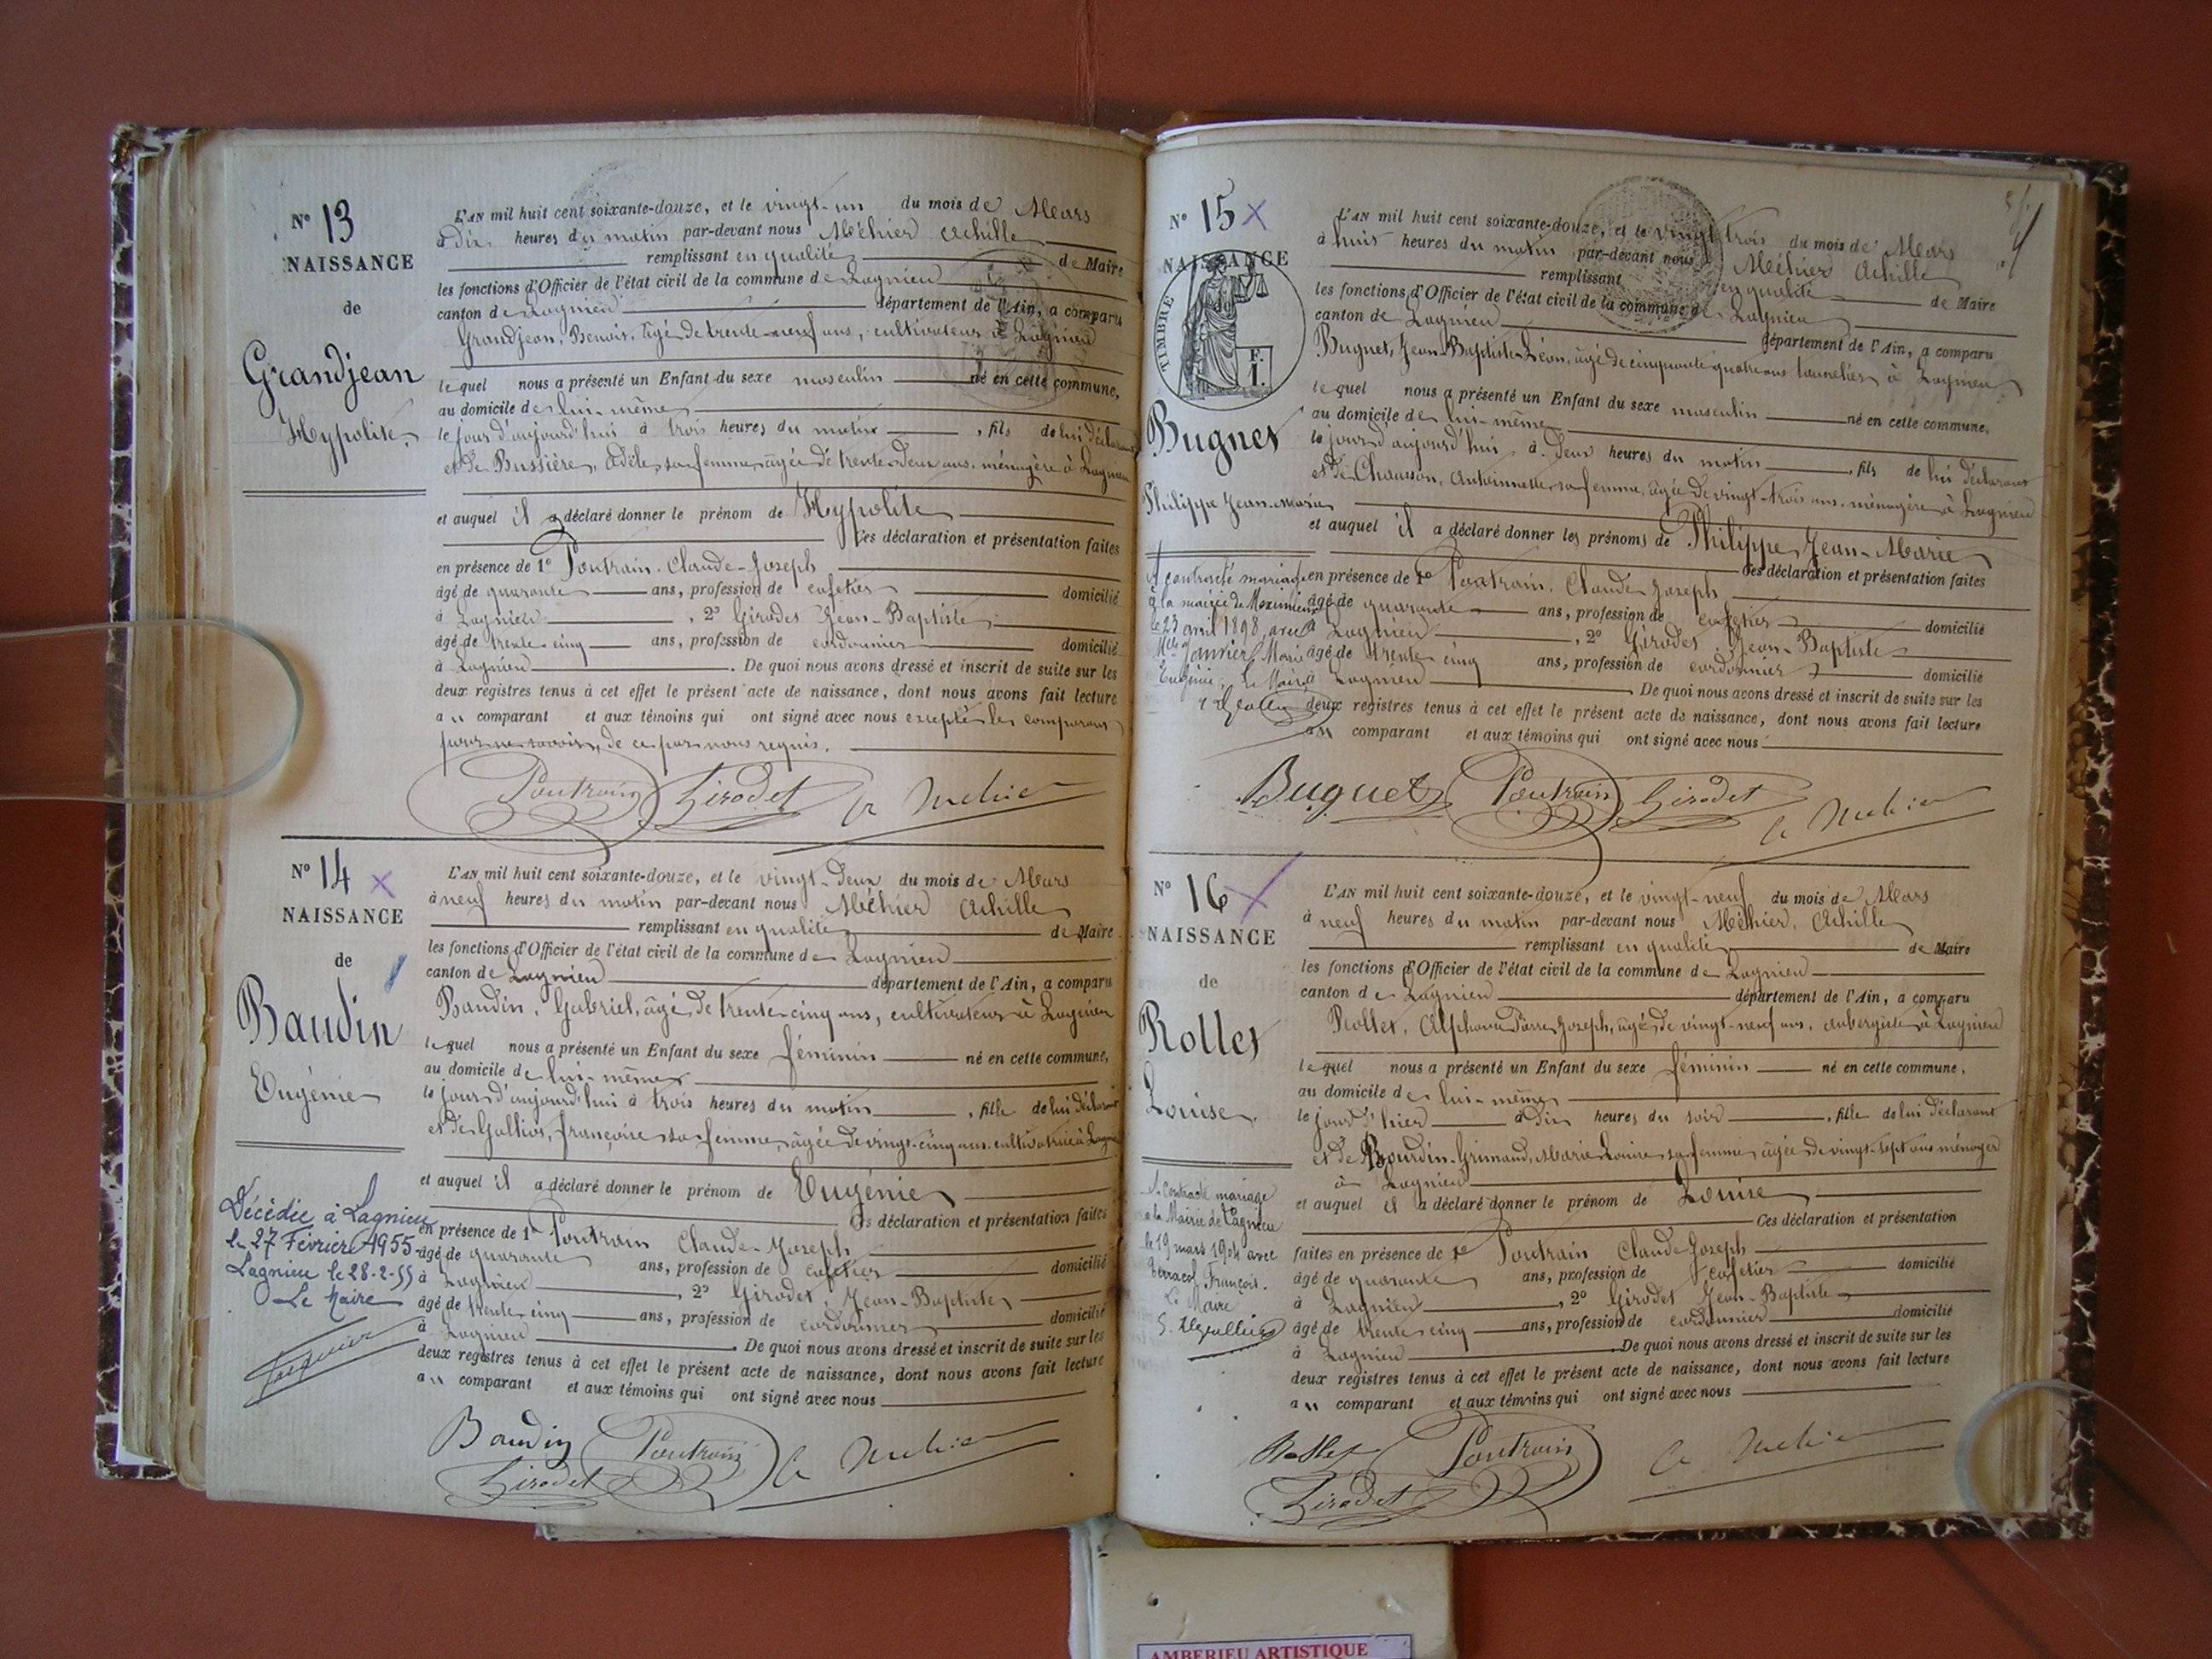 N° 13
NAISSANCE
de
Grandjean
Hypolite
L'AN mil huit cent soixante-douze, et le vingt-un du mois de Mars
à dix heures du matin par-devant nous Méhier Achille
remplissant en qualité de Maire
les fonctions d'Officier de l'état civil de la commune de Lagnieu
canton de Lagnieu département de l'Ain, a comparu
Grandjean, Benoit, âgé de trente-neuf ans, cultivateur à Lagnieu
lequel nous a présenté un Enfant du sexe masculin né en cette commune,
au domicile de lui-même
le jour d'aujourd'hui à trois heures du matin, fils de lui déclarant
et de Bussière, Adèle sa femme, âgée de trente-deux ans, ménagère à Lagnieu
et auquel il a déclaré donner le prénom de Hypolite
Ces déclaration et présentation faites
en présence de 1° Poutrain, Claude-Joseph
âgé de quarante ans, profession de cafetier domicilié
à Lagnieu, 2° Girodet Jean-Baptiste
âgé de trente-cinq ans, profession de cordonnier domicilié
à Lagnieu. De quoi nous avons dressé et inscrit de suite sur les
deux registres tenus à cet effet le présent acte de naissance, dont nous avons fait lecture
au comparant et aux témoins qui ont signé avec nous excepté le comparant
pour ne savoir, de ce par nous requis.
Poutrain Girodet A Méhier
N° 14 X
NAISSANCE
de
Baudin
Eugénie
L'AN mil huit cent soixante-douze, et le vingt-deux du mois de Mars
à neuf heures du matin par-devant nous Méhier Achille
remplissant en qualité de Maire
les fonctions d'Officier de l'état civil de la commune de Lagnieu
canton de Lagnieu département de l'Ain, a comparu
Baudin, Gabriel, âgé de trente-cinq ans, cultivateur à Lagnieu
lequel nous a présenté un Enfant du sexe féminin né en cette commune,
au domicile de lui-même
le jour d'aujourd'hui à trois heures du matin, fille de lui déclarant
et de françoise sa femme, âgée de vingt-cinq ans, cultivatrice à Lagnieu
et auquel il a déclaré donner le prénom de Eugénie
Ces déclaration et présentation faites
en présence de 1° Poutrain Claude-Joseph
âgé de quarante ans, profession de cafetier domicilié
à Lagnieu, 2° Girodet, Jean-Baptiste
âgé de trente-cinq ans, profession de cordonnier domicilié
à Lagnieu. De quoi nous avons dressé et inscrit de suite sur les
deux registres tenus à cet effet le présent acte de naissance, dont nous avons fait lecture
au comparant et aux témoins qui ont signé avec nous
Décédée à Lagnieu
le 27 Février 1955
Lagnieu le 28-2-55
Le Maire
Baudin Poutrain A Méhier
Girodet
N° 15 X
NAISSANCE
de
TIMBRE
F.
1.
Bugnet
Philippe Jean-Marie
L'AN mil huit cent soixante-douze, et le vingt trois du mois de Mars
à huit heures du matin par-devant nous Méhier Achille
remplissant en qualité de Maire
les fonctions d'Officier de l'état civil de la commune de Lagnieu
canton de Lagnieu département de l'Ain, a comparu
Bugnet, Jean-Baptiste Léon, âgé de cinquante quatre ans tonnelier à Lagnieu
lequel nous a présenté un Enfant du sexe masculin né en cette commune,
au domicile de lui-même
le jour d'aujourd'hui, à deux heures du matin, fils de lui déclarant
et de Chausson, Antoinette sa femme, âgée de vingt-trois ans, ménagère à Lagnieu
et auquel il a déclaré donner les prénoms de Philippe Jean-Marie
Ces déclaration et présentation faites
en présence de 1° Poutrain, Claude Joseph
âgé de quarante ans, profession de cafetier domicilié
à Lagnieu, 2° Girodet, Jean-Baptiste
âgé de trente cinq ans, profession de cordonnier domicilié
à Lagnieu. De quoi nous avons dressé et inscrit de suite sur les
deux registres tenus à cet effet le présent acte de naissance, dont nous avons fait lecture
au comparant et aux témoins qui ont signé avec nous
A contracté mariage
à la mairie de Meximieux
le 23 avril 1898 avec
Janvier Marie
Eugénie. Le Maire
Buguet Poutrain Girodet A Méhier
N° 16 X
NAISSANCE
de
Rollet
Louise
L'AN mil huit cent soixante-douze, et le vingt-neuf du mois de Mars
à neuf heures du matin par-devant nous Méhier, Achille
remplissant en qualité de Maire
les fonctions d'Officier de l'état civil de la commune de Lagnieu
canton de Lagnieu département de l'Ain, a comparu
Rollet, Alphonse Pierre Joseph, âgé de vingt-neuf ans, aubergiste à Lagnieu
lequel nous a présenté un Enfant du sexe féminin né en cette commune,
au domicile de lui-même
le jour d'hier à dix heures du soir, fille de lui déclarant
et de Bourdin-Grimaud, Marie Louise sa femme âgée de vingt-sept ans ménagère
à Lagnieu
et auquel il a déclaré donner le prénom de Louise
Ces déclaration et présentation
faites en présence de 1° Poutrain Claude Joseph
âgé de quarante ans, profession de cafetier domicilié
à Lagnieu, 2° Girodet Jean-Baptiste
âgé de trente cinq ans, profession de cordonnier domicilié
à Lagnieu. De quoi nous avons dressé et inscrit de suite sur les
deux registres tenus à cet effet le présent acte de naissance, dont nous avons fait lecture
au comparant et aux témoins qui ont signé avec nous
A contracté mariage
à la Mairie de Lagnieu
le 19 mars 1904 avec
François.
Le Maire
Rollet Poutrain A Méhier
Girodet
AMBERIEU ARTISTIQUE